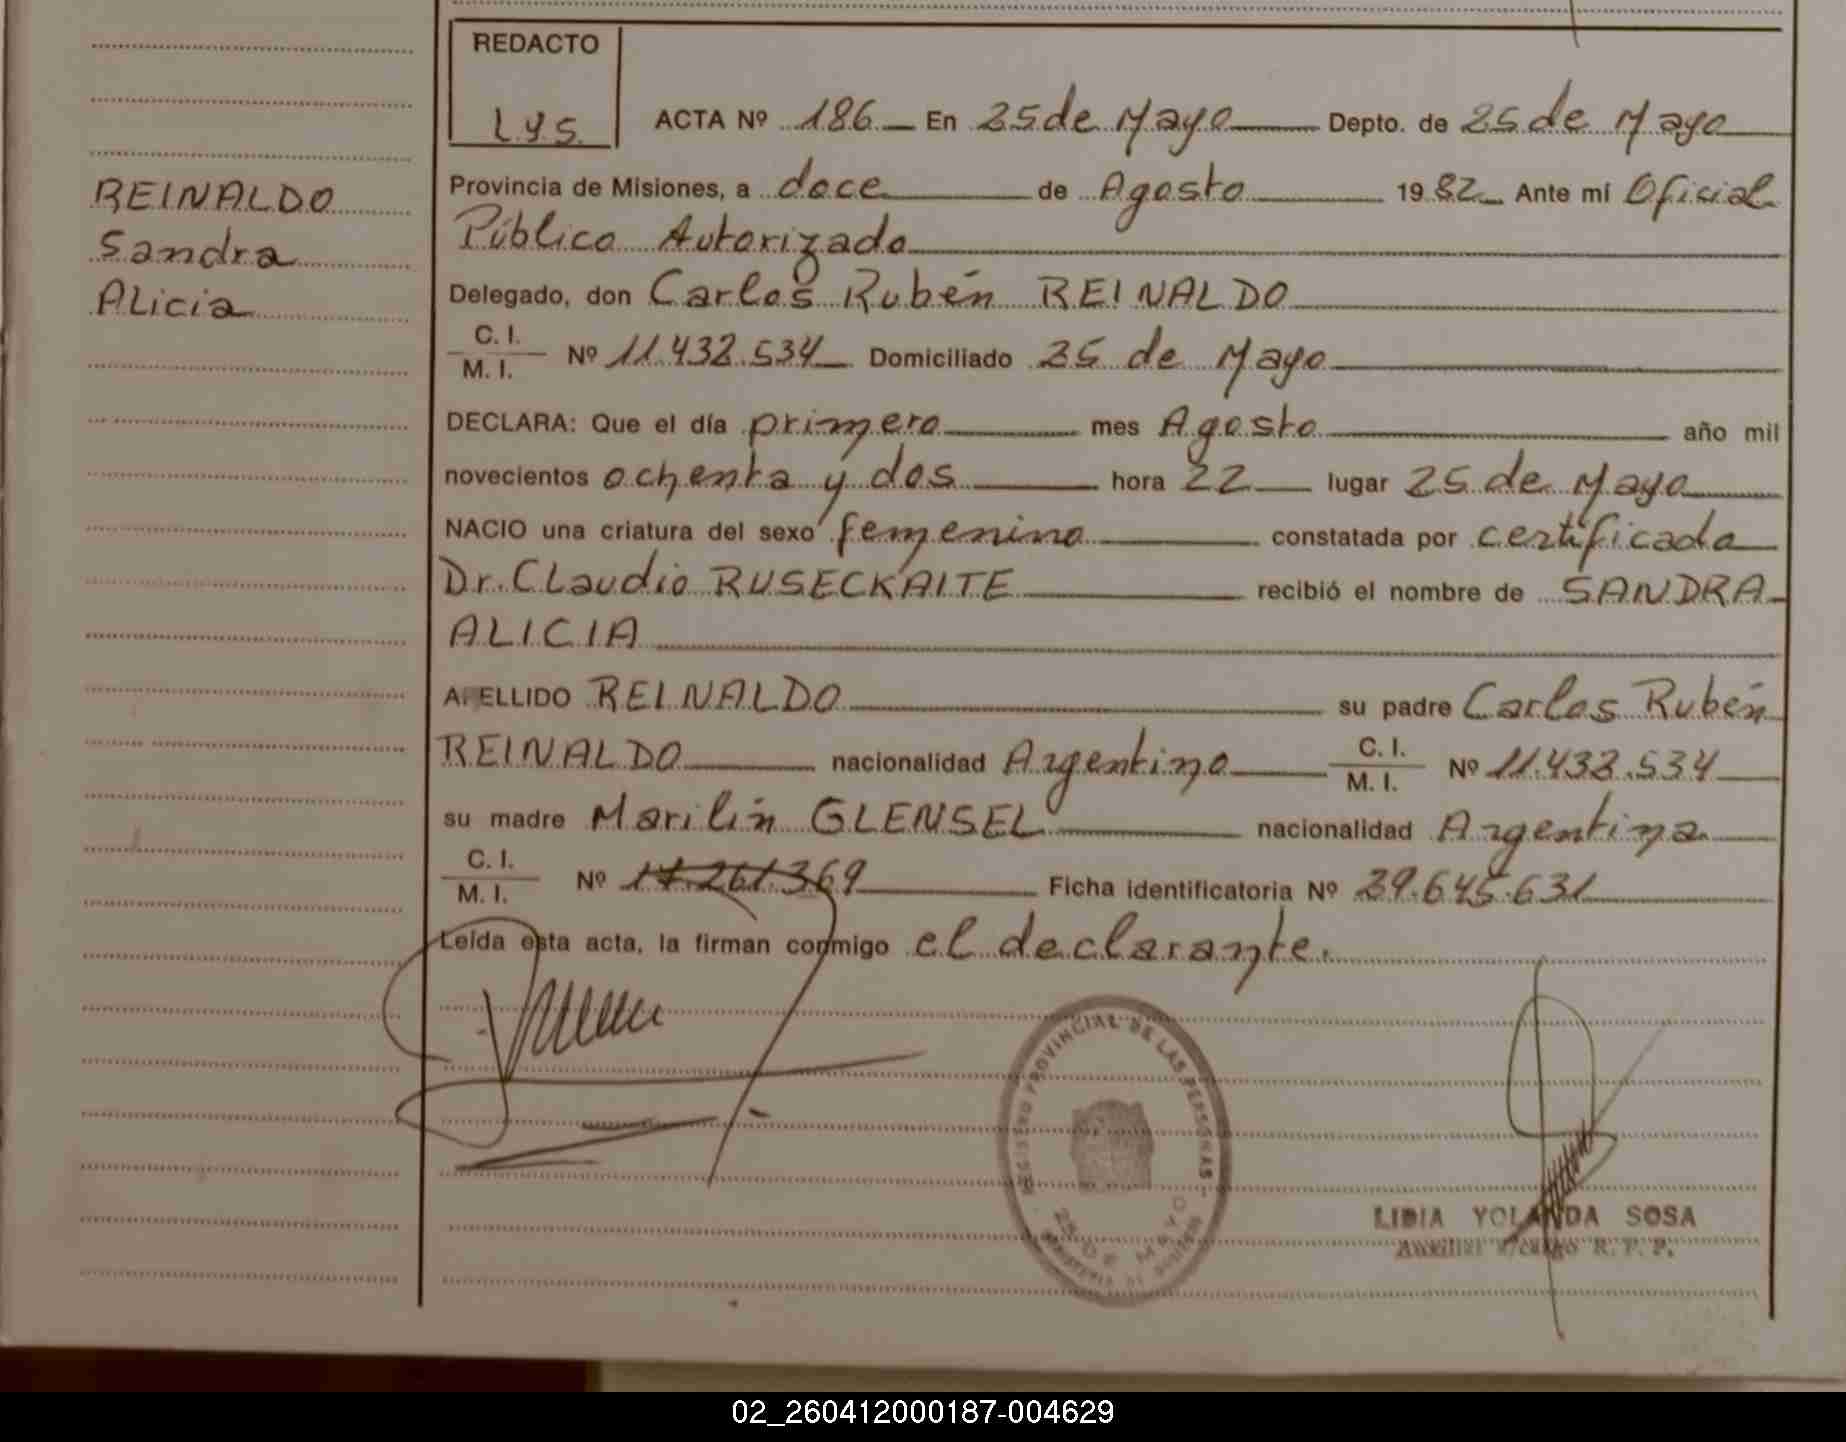 REDACTO
L.Y.S.
ACTA Nº 186 En 25 de Mayo Depto. de 25 de Mayo
REINALDO
Sandra
Alicia
Provincia de Misiones, a doce de Agosto 1982 Ante mí Oficial
Público Autorizado
Delegado, don Carlos Rubén REINALDO
C. I.
M. I. Nº 11.432.534 Domiciliado 25 de Mayo
DECLARA: Que el día primero mes Agosto año mil
novecientos ochenta y dos hora 22 lugar 25 de Mayo
NACIO una criatura del sexo femenino constatada por certificado
Dr. Claudio RUSECKAITE recibió el nombre de SANDRA
ALICIA
APELLIDO REINALDO su padre Carlos Rubén
REINALDO nacionalidad Argentino C. I.
M. I. Nº 11.432.534
su madre Marilin GLENSEL nacionalidad Argentina
C. I.
M. I. Nº 17.261.369 Ficha identificatoria Nº 29.645.631
Leída esta acta, la firman conmigo el declarante.
REGISTRO PROVINCIAL DE LAS PERSONAS
25 DE MAYO
LIDIA YOLANDA SOSA
Auxiliar a/cargo R. P. P.
02_260412000187-004629